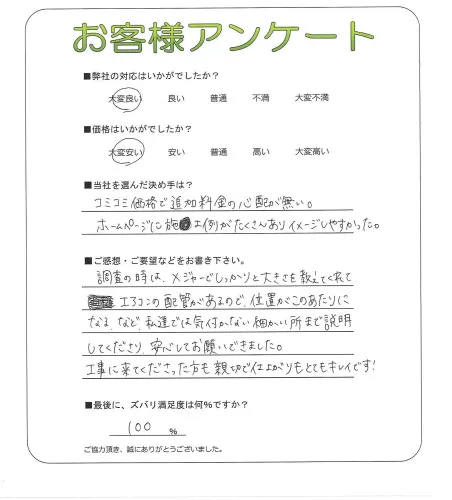 お客様アンケート
■弊社の対応はいかがでしたか？
大変良い 良い 普通 不満 大変不満
■価格はいかがでしたか？
大変安い 安い 普通 高い 大変高い
■当社を選んだ決め手は？
コミコミ価格で追加料金の心配が無い。
ホームページに施工例がたくさんありイメージしやすかった。
■ご感想・ご要望などをお書き下さい。
調査の時は、メジャーでしっかりと大きさを教えてくれて
エコロの配管があるので、位置がこのあたりに
なる、など、私達では気付かない細かい所まで説明
してくださり、安心してお願いできました。
工事に来てくださった方も親切で仕上がりもとてもキレイです!
■最後に、ズバリ満足度は何%ですか？
100 %
ご協力頂き、誠にありがとうございました。